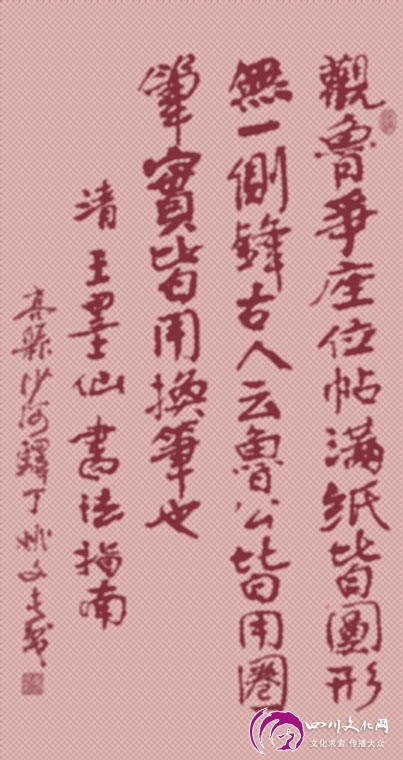 觀魯爭座位帖滿紙皆圓形
無一側鋒古人云魯公皆用圈
筆實皆用換筆也
清 王墨仙 書法指南
高縣沙河驛丁 姚文
四川文化网
文化求索 传播大众